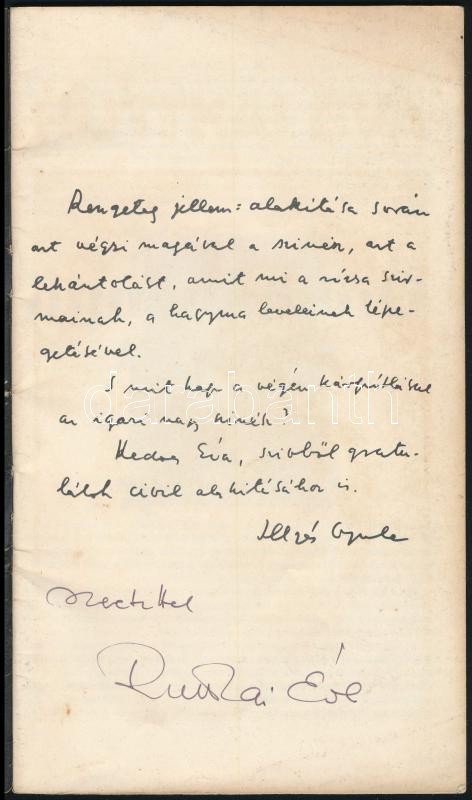 Rengeteg jellem-alakitása során
azt végzi magával a szinész, azt a
lehántolást, amit mi a rózsa szir-
mainak, a hagyma leveleinek tépe-
getésével.
S mit kap a végén kárpótlásul
az igazi nagy szinész?
Kedves Éva, szivből gratu-
lálok civil alakitásához is.
Illyés Gyula
Szeretettel
Ruttkai Éva
darabanth